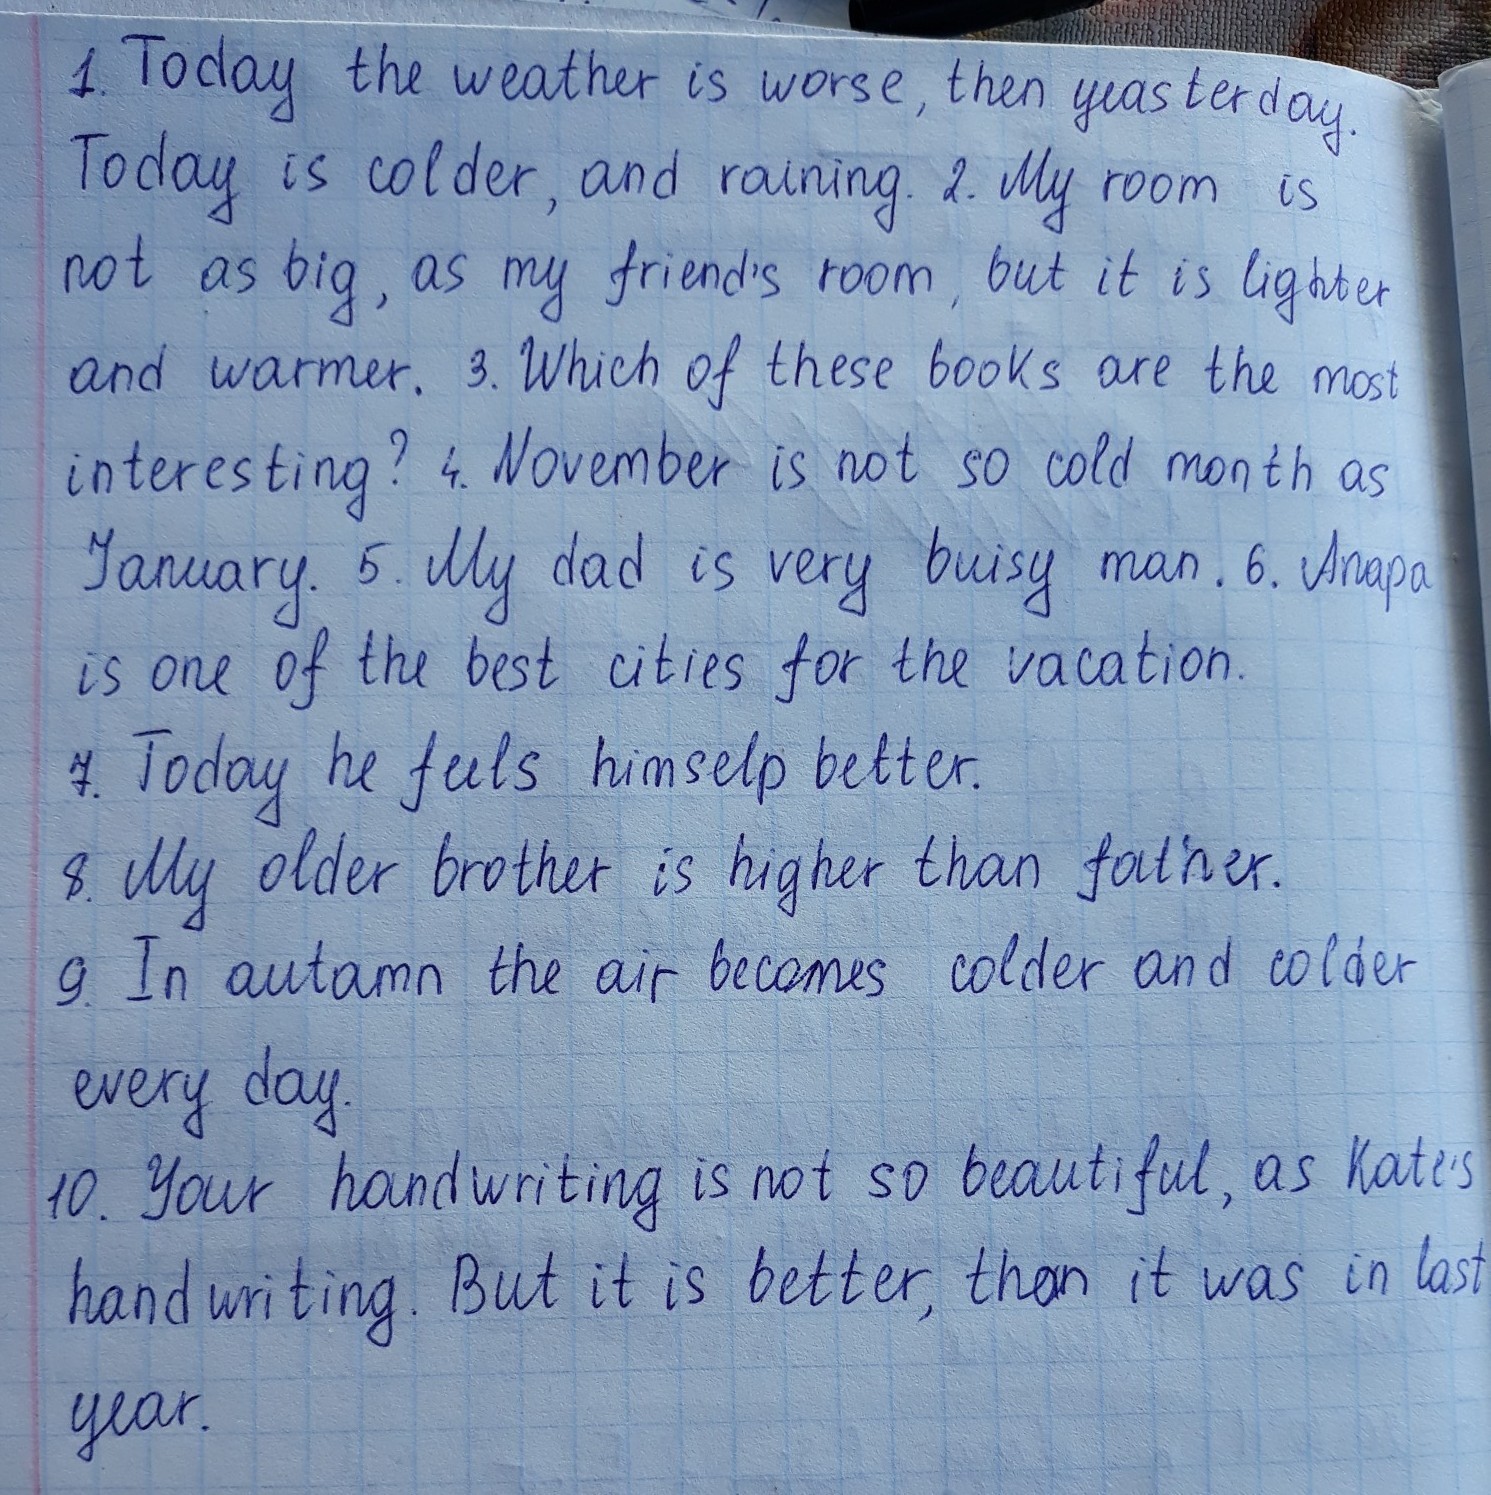 1. Today the weather is worse, then yeasterday.
Today is colder, and raining. 2. My room is
not as big, as my friend's room, but it is lighter
and warmer. 3. Which of these books are the most
interesting? 4. November is not so cold month as
January. 5. My dad is very buisy man. 6. Anapa
is one of the best cities for the vacation.
7. Today he feels himselp better.
8. My older brother is higher than father.
9. In autamn the air becomes colder and colder
every day.
10. Your handwriting is not so beautiful, as Kate's
handwriting. But it is better, than it was in last
year.